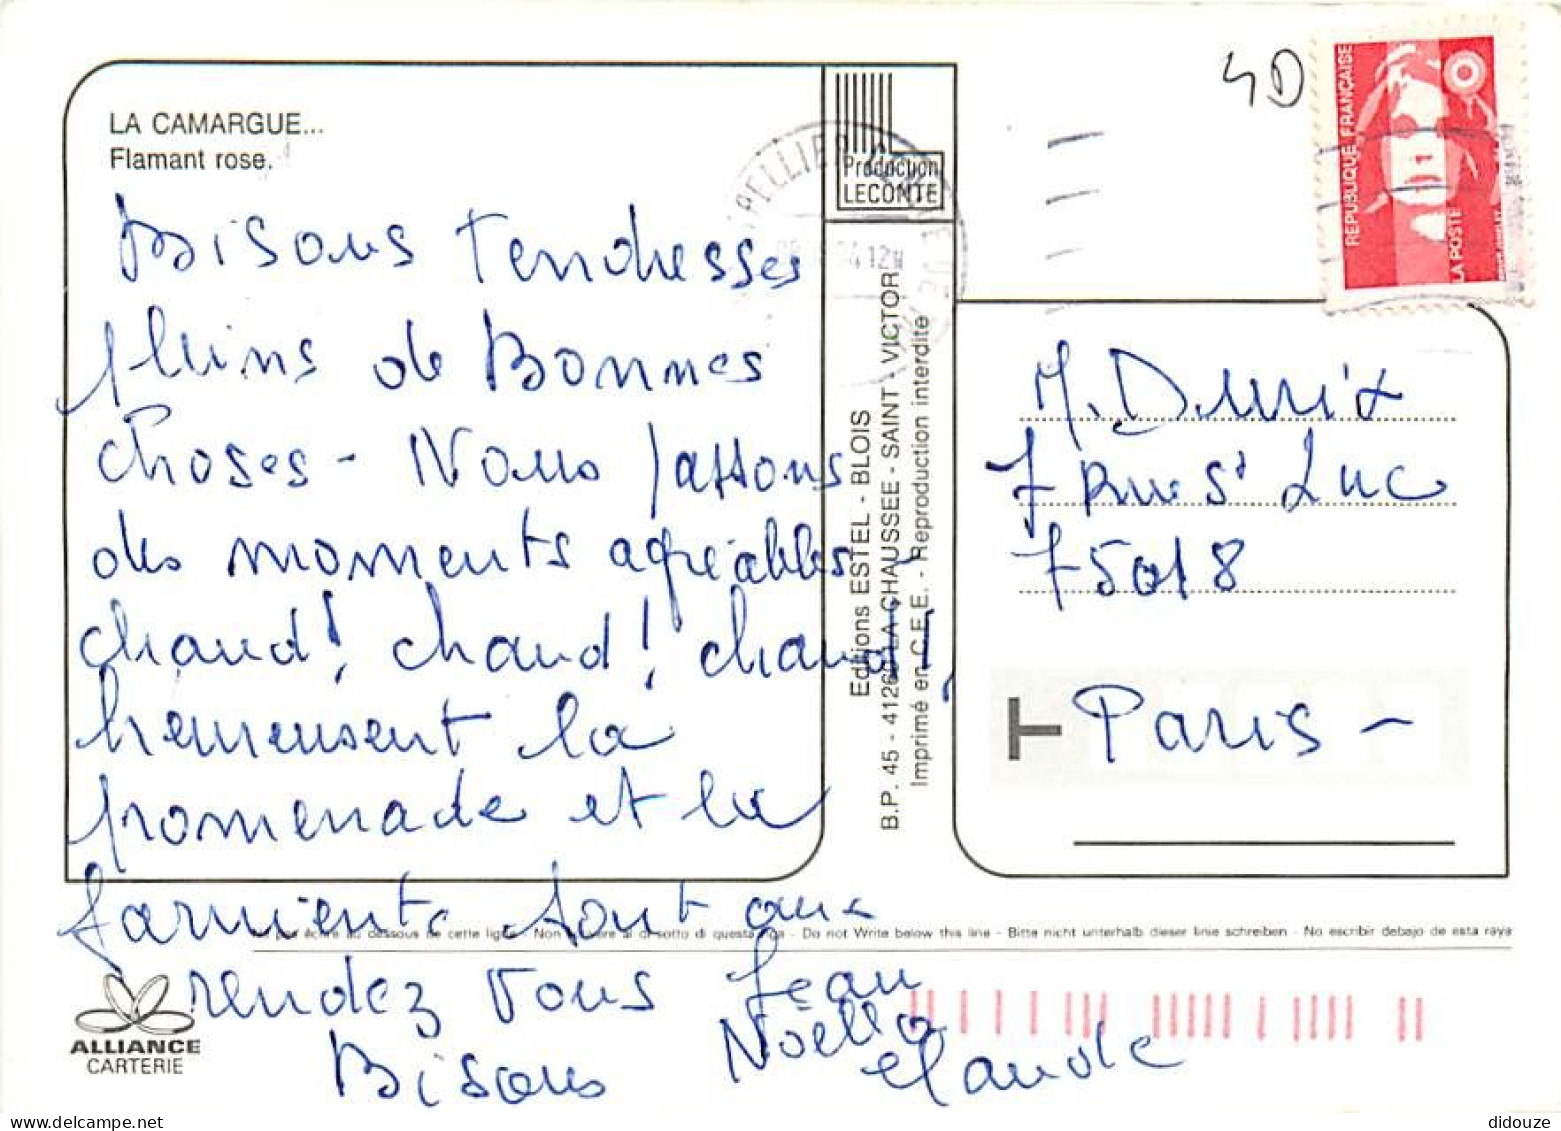 LA CAMARGUE...
Flamant rose.
Bisous Tendresses
pleins de Bonnes
choses - Nous passons
des moments agréables -
chaud! chaud! chaud!,
heureusent la
promenade et la
farniente sont aux
rendez vous
Bisous
Jean
Noëlla
Claude
Production
LECONTE
PELLIER
94 12
Editions ESTEL - BLOIS
B.P. 45 - 41260 LA CHAUSSEE - SAINT - VICTOR
Imprimé en C.E.E. - Reproduction interdite
4D
REPUBLIQUE FRANÇAISE
LA POSTE
M.
7 Rue St Luc
75018
T
Paris -
pas écrire au dessous de cette ligne - Non scrivere al di sotto di questa riga - Do not Write below this line - Bitte nicht unterhalb dieser linie schreiben - No escribir debajo de esta raya
ALLIANCE
CARTERIE
didouze